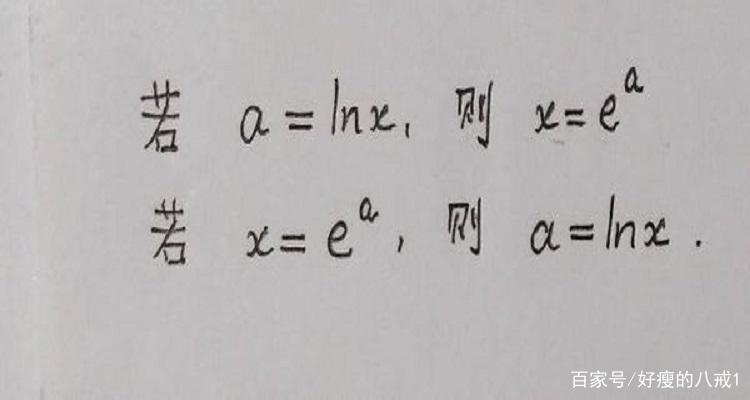 若 a=lnx, 则 x=eᵃ
若 x=eᵃ, 则 a=lnx.
百家号/好瘦的八戒1